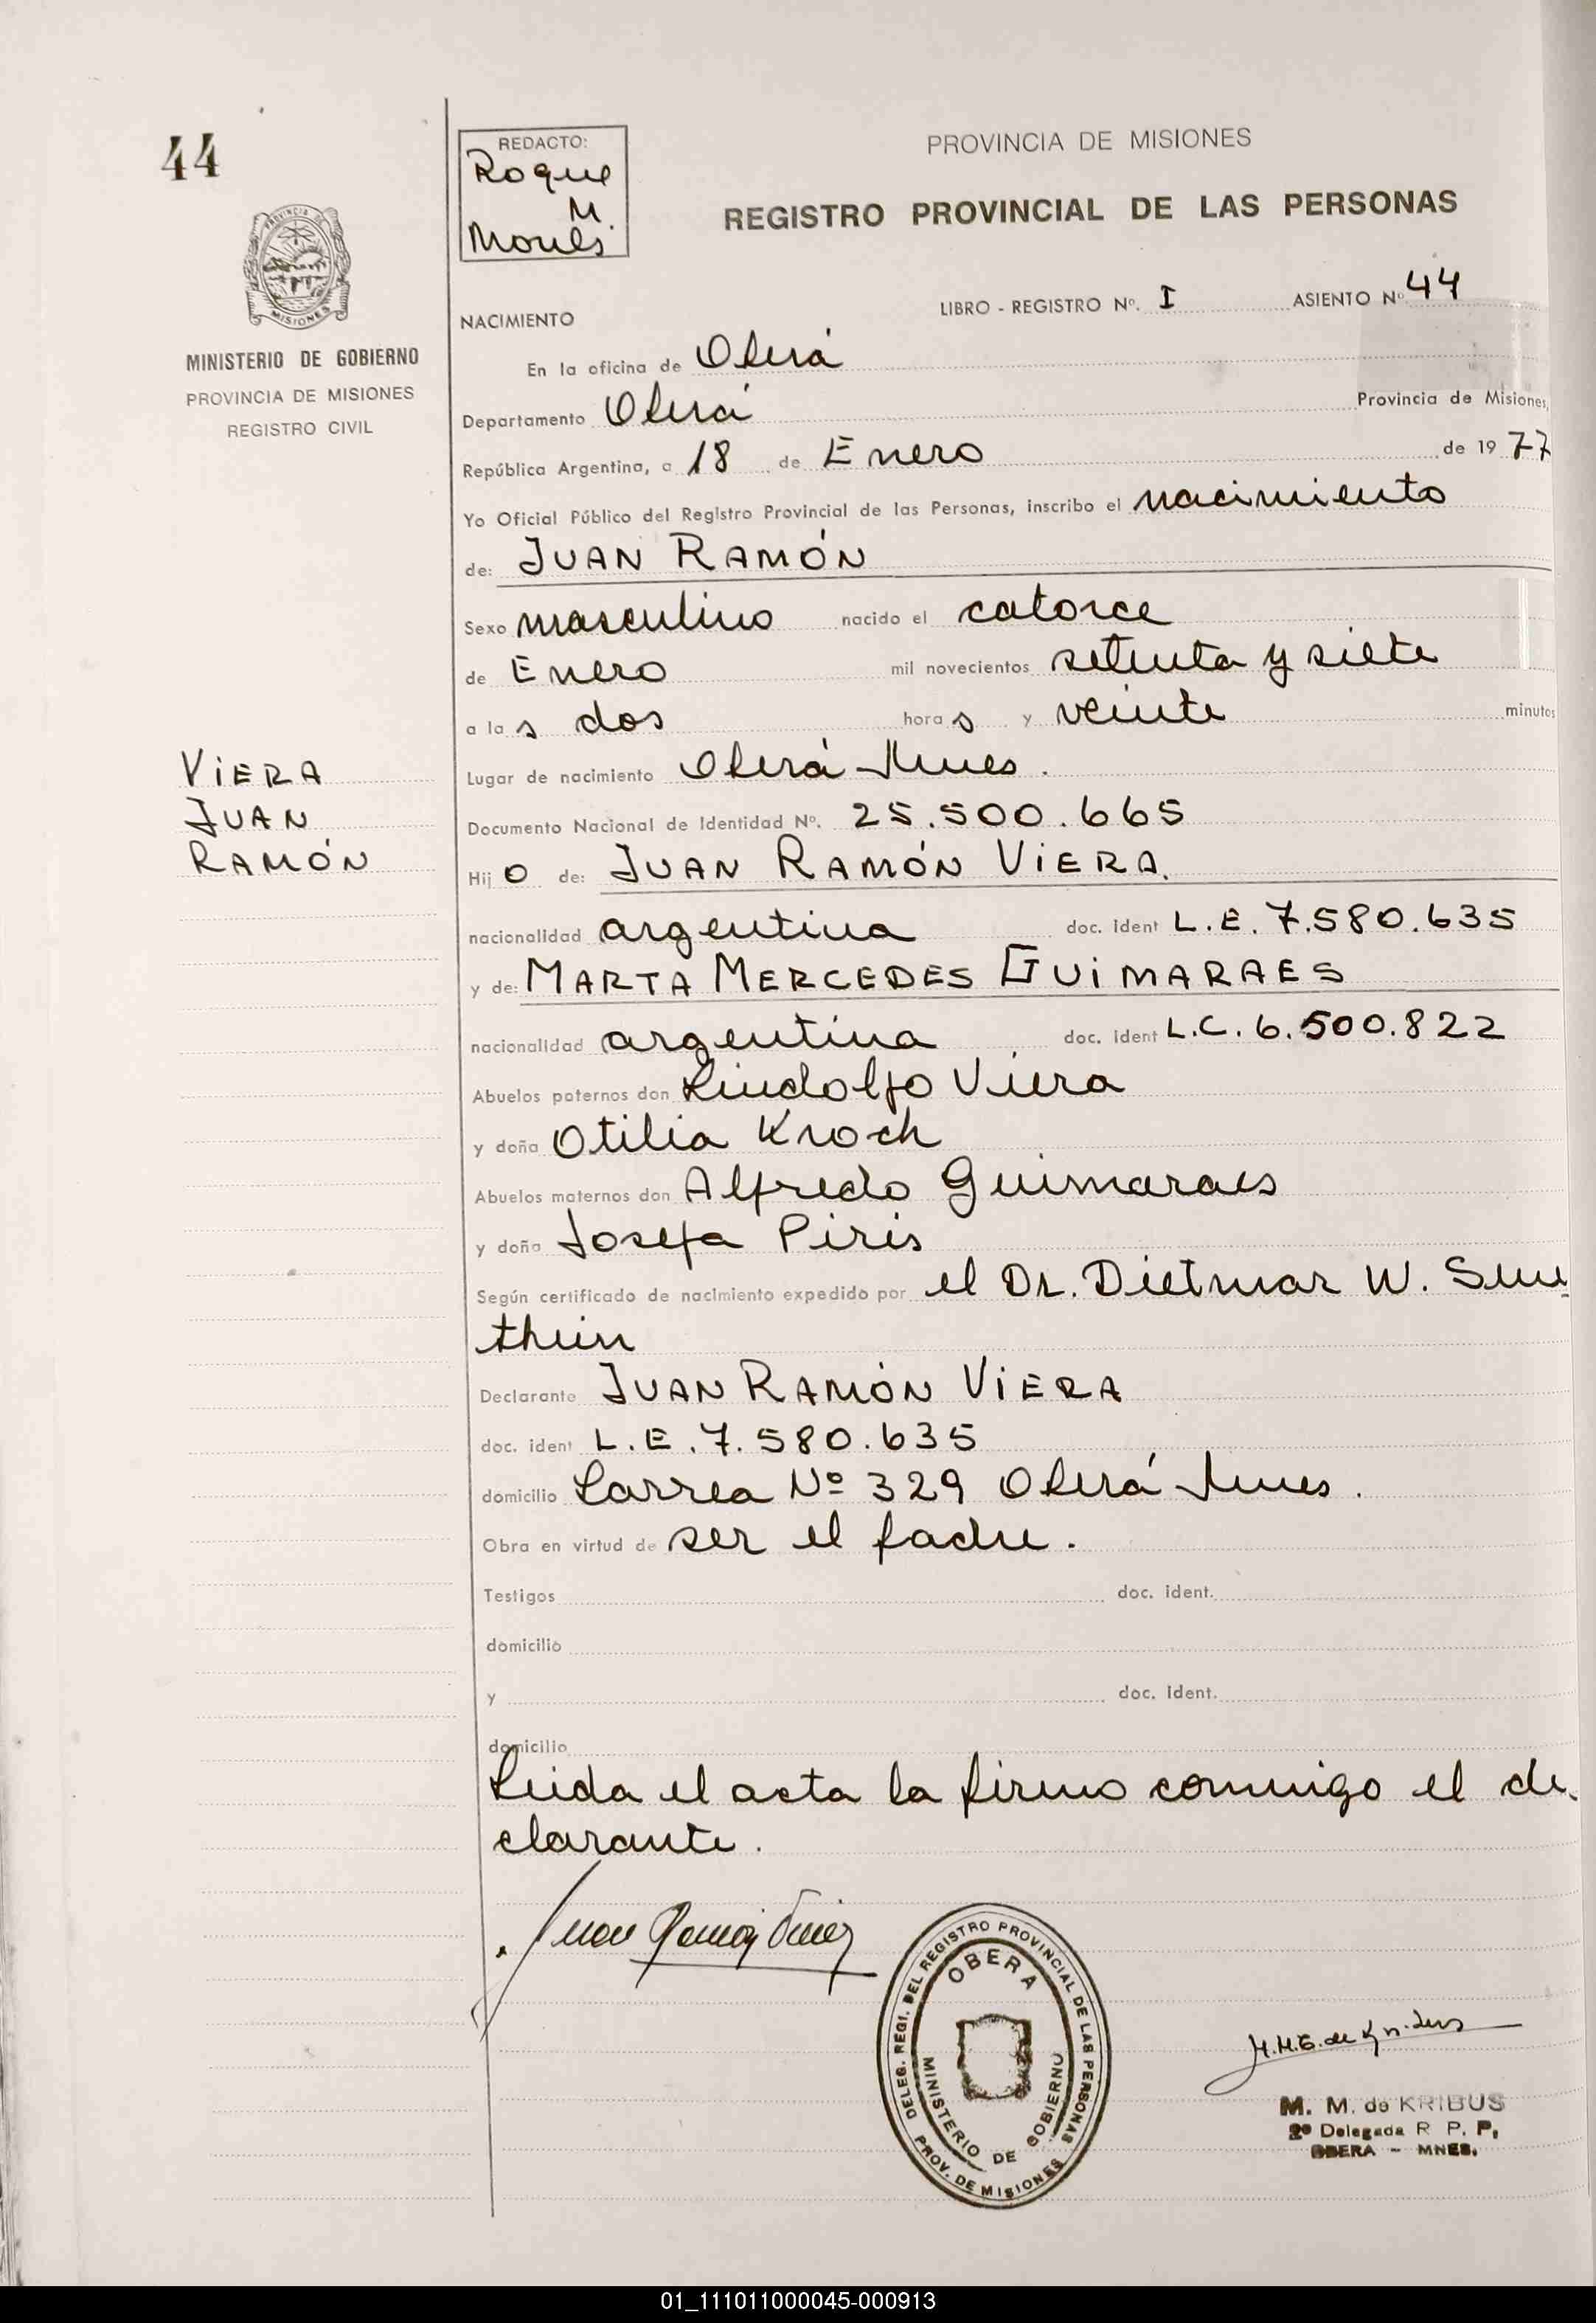 44
PROVINCIA DE
MISIONES
MINISTERIO DE GOBIERNO
PROVINCIA DE MISIONES
REGISTRO CIVIL
REDACTO:
Roque
M.
PROVINCIA DE MISIONES
REGISTRO PROVINCIAL DE LAS PERSONAS
LIBRO - REGISTRO Nº. I ASIENTO Nº 44
NACIMIENTO
En la oficina de Oberá
Departamento Oberá Provincia de Misiones,
República Argentina, a 18 de Enero de 1977
Yo Oficial Público del Registro Provincial de las Personas, inscribo el nacimiento
de: JUAN RAMÓN
Sexo masculino nacido el catorce
de Enero mil novecientos setenta y siete
a las dos horas y veinte minutos
VIERA
JUAN
RAMÓN
Lugar de nacimiento Oberá Mnes.
Documento Nacional de Identidad Nº. 25.500.665
Hijo de: JUAN RAMÓN VIERA.
nacionalidad argentina doc. ident L.E. 7.580.635
y de: MARTA MERCEDES GUIMARAES
nacionalidad argentina doc. ident L.C. 6.500.822
Abuelos paternos don Lindolfo Viera
y doña Otilia Kroch
Abuelos maternos don Alfredo Guimaraes
y doña Josefa Piris
Según certificado de nacimiento expedido por el Dr. Dietmar W.
Declarante JUAN RAMÓN VIERA
doc. ident L.E. 7.580.635
domicilio Larrea Nº 329 Oberá Mnes.
Obra en virtud de ser el padre.
Testigos doc. ident.
domicilio
y doc. ident.
domicilio
Leida el acta la firma conmigo el de-
clarante.
Juan Ramón Viera
DELEG. REGI. DEL REGISTRO PROVINCIAL DE LAS PERSONAS
PROV. DE MISIONES
OBERA
MINISTERIO DE GOBIERNO
M. M. de KRIBUS
2º Delegada R. P. P.
OBERA - MNES.
01_111011000045-000913